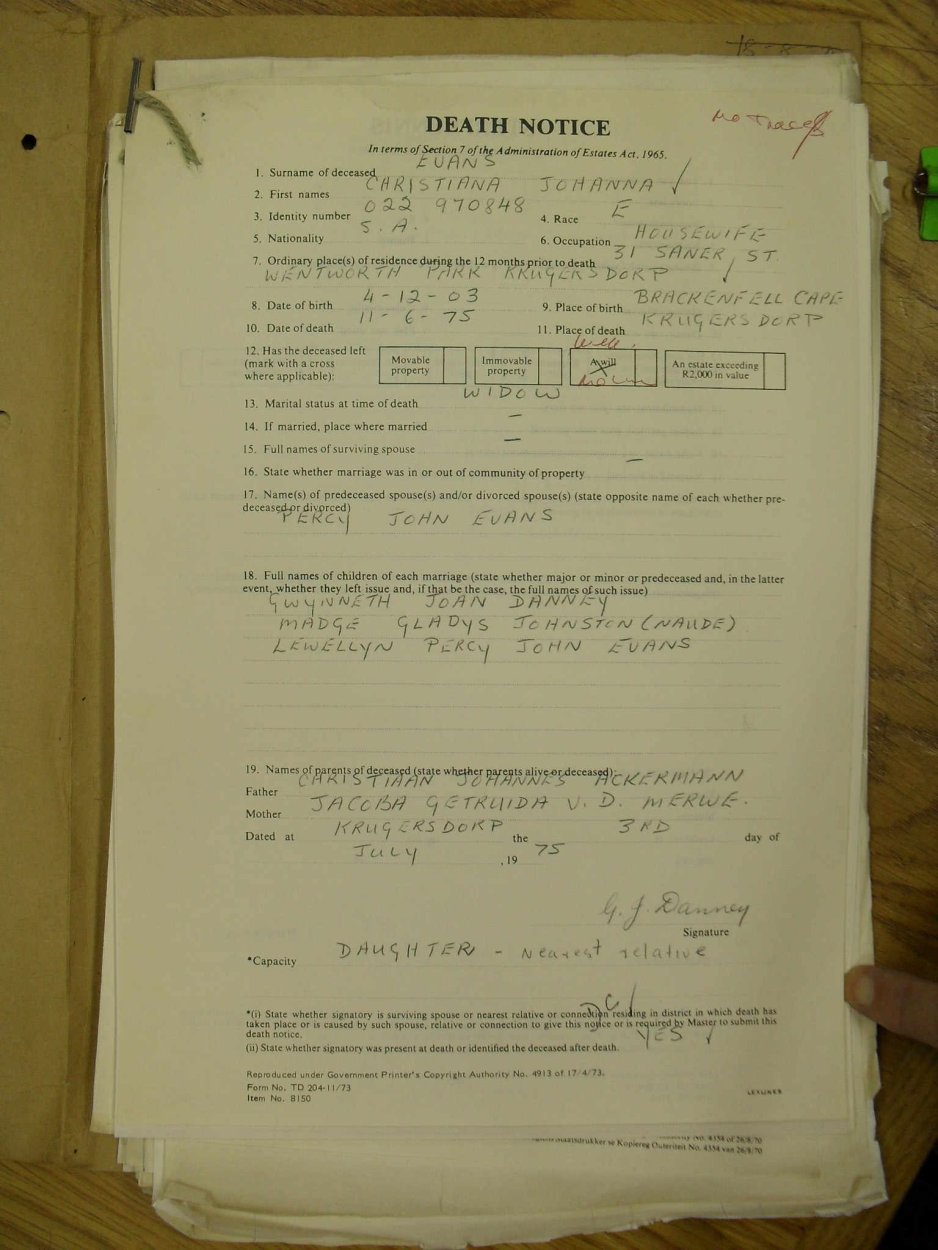 DEATH NOTICE
No Traces
In terms of Section 7 of the Administration of Estates Act, 1965.
1. Surname of deceased EVANS
2. First names CHRISTIANA JOHANNA
3. Identity number 022 970848 4. Race E
5. Nationality S.A. 6. Occupation HOUSEWIFE
7. Ordinary place(s) of residence during the 12 months prior to death 31 SANER ST.
WENTWORTH PARK KRUGERSDORP
8. Date of birth 4-12-03 9. Place of birth BRACKENFELL CAPE
10. Date of death 11-6-75 11. Place of death KRUGERSDORP
12. Has the deceased left (mark with a cross where applicable):
Movable property
Immovable property
A will
An estate exceeding R2,000 in value
13. Marital status at time of death WIDOW
14. If married, place where married –
15. Full names of surviving spouse –
16. State whether marriage was in or out of community of property –
17. Name(s) of predeceased spouse(s) and/or divorced spouse(s) (state opposite name of each whether pre-
deceased or divorced)
PERCY JOHN EVANS
18. Full names of children of each marriage (state whether major or minor or predeceased and, in the latter
event, whether they left issue and, if that be the case, the full names of such issue)
GWYNNETH JOAN DANNEY
MADGE GLADYS JOHNSTON (NAUDE)
LEWELLYN PERCY JOHN EVANS
19. Names of parents of deceased (state whether parents alive or deceased):
Father CHRISTIAAN JOHANNES ACKERMANN
Mother JACOBA GETRUIDA V.D. MERWE.
Dated at KRUGERSDORP the 3RD day of
JULY , 19 75
G. J. Danney
Signature
*Capacity DAUGHTER - Nearest relative
*(i) State whether signatory is surviving spouse or nearest relative or connection residing in district in which death has
taken place or is caused by such spouse, relative or connection to give this notice or is required by Master to submit this
death notice.
YES
(ii) State whether signatory was present at death or identified the deceased after death.
Reproduced under Government Printer's Copyright Authority No. 4913 of 17/4/73.
Form No. TD 204-11/73
Item No. 8150
No. 4354 of 26/8/70
Staatsdrukker se Kopiereg Outeriteit No. 4354 van 26/8/70